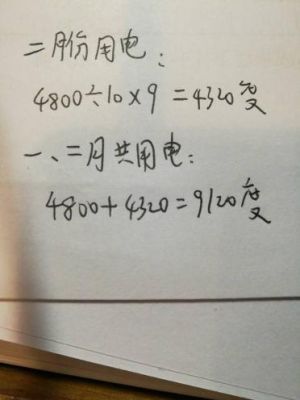 二月份用电：
4800÷10×9=4320度
一、二月共用电：
4800+4320=9120度